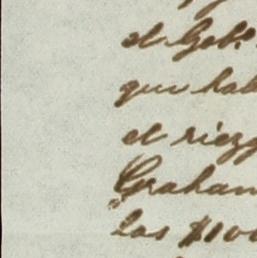 el Gobº
que hab
el riezg
Graham
las $100